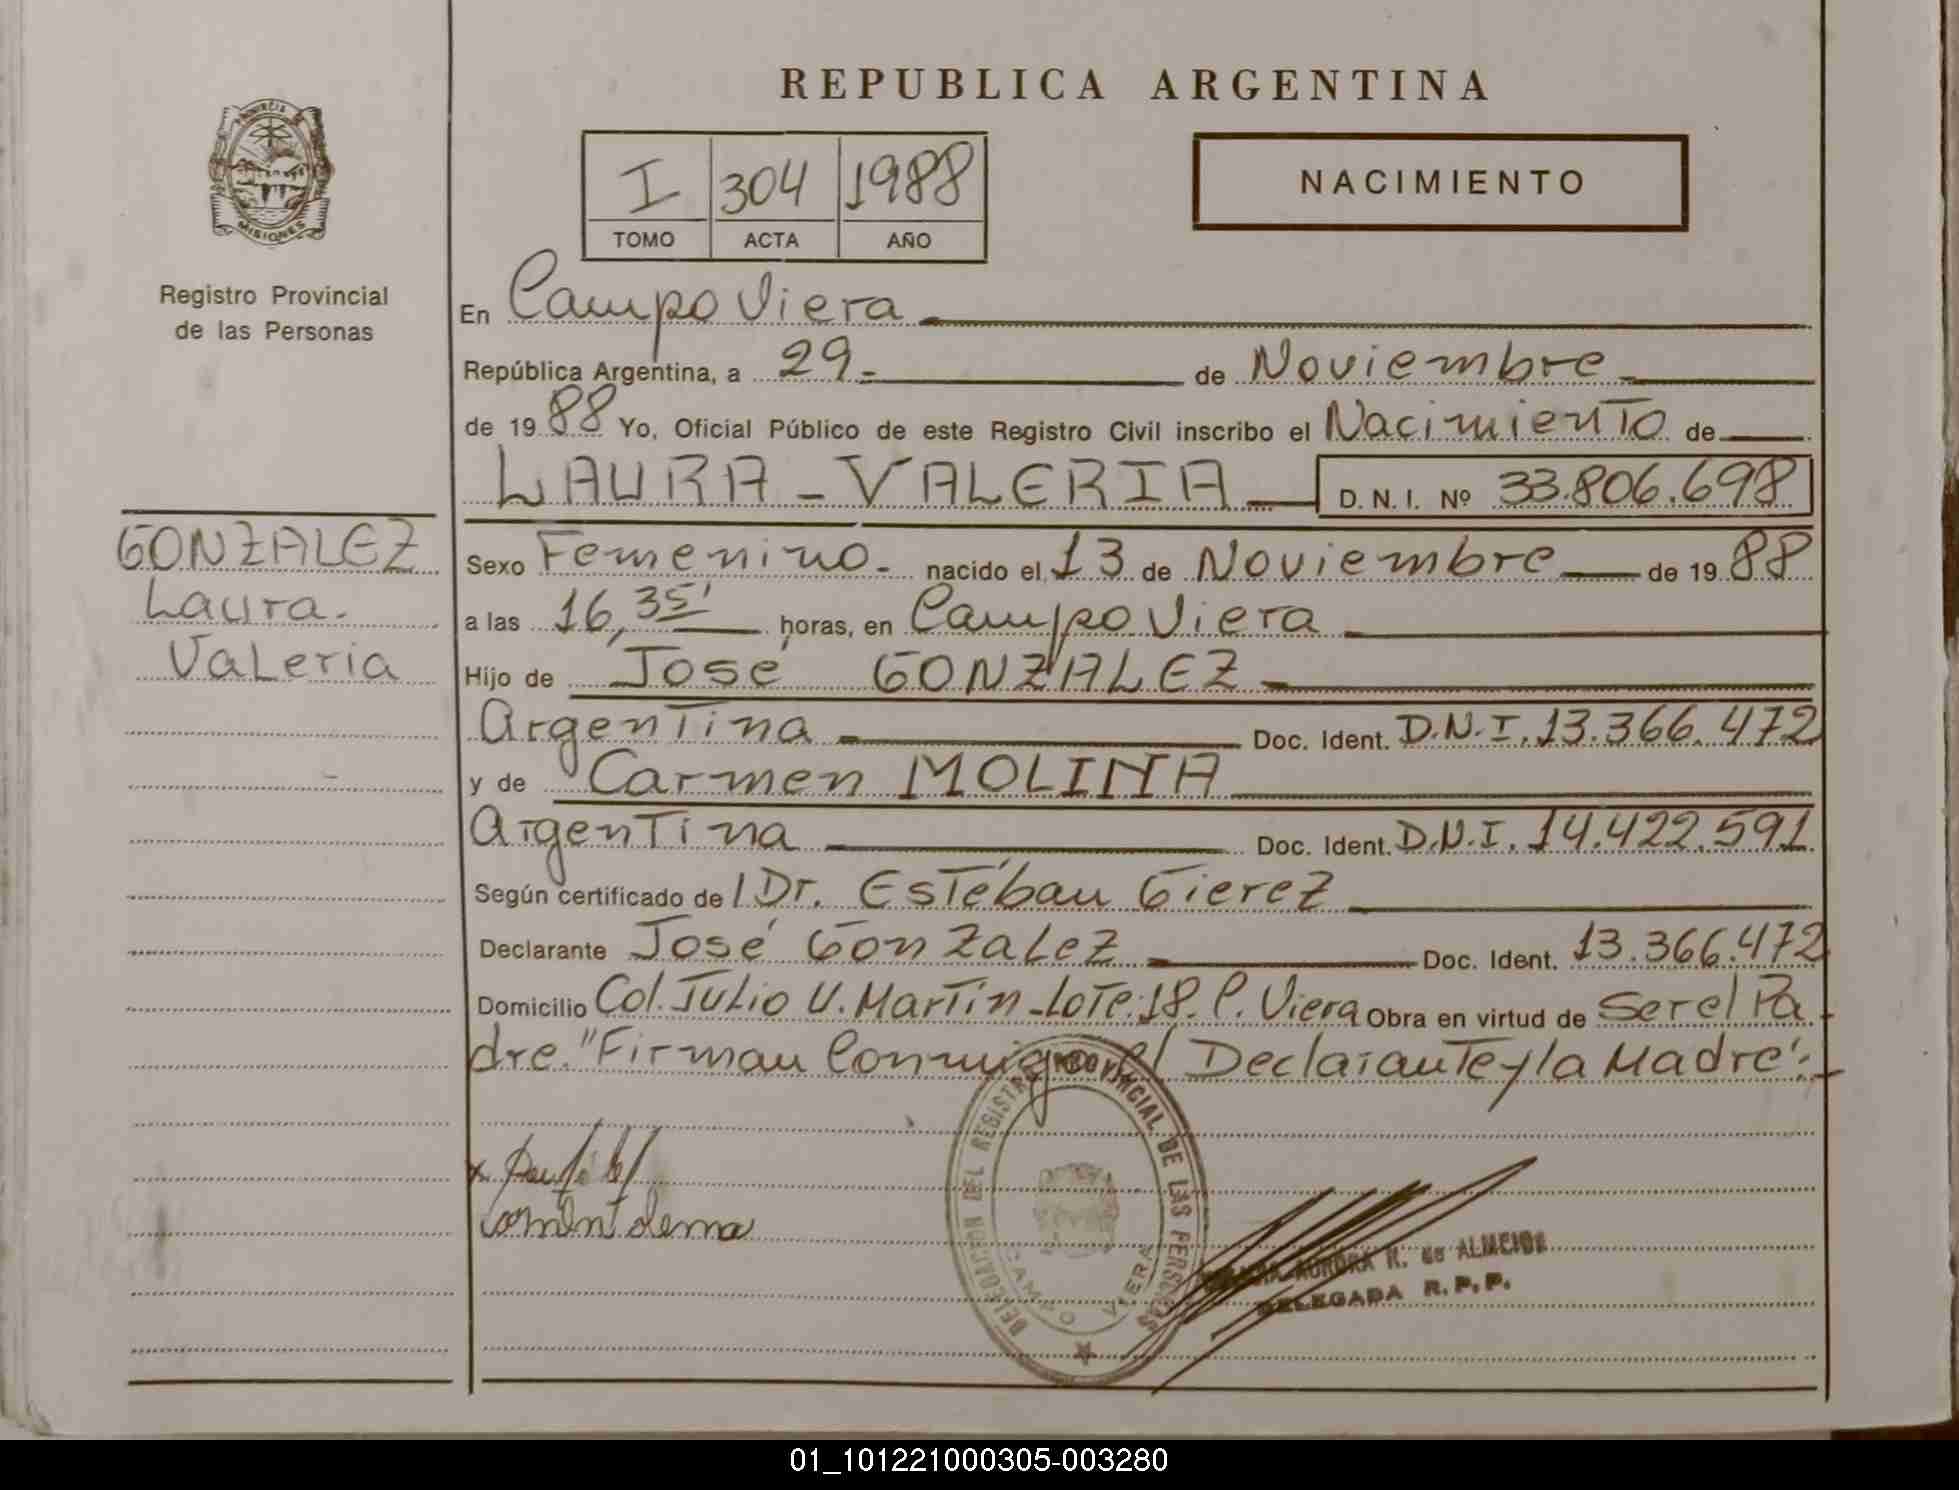 REPUBLICA ARGENTINA
PROVINCIA DE
MISIONES
Registro Provincial
de las Personas
I 304 1988
TOMO ACTA AÑO
NACIMIENTO
En Campo Viera
República Argentina, a 29.- de Noviembre
de 19 88 Yo, Oficial Público de este Registro Civil inscribo el Nacimiento de
LAURA - VALERIA D. N. I. Nº 33.806.698
GONZALEZ
Laura.
Valeria
Sexo Femenino.- nacido el 13 de Noviembre de 19 88
a las 16,35' horas, en Campo Viera
Hijo de José GONZALEZ
Argentina Doc. Ident. D.N.I. 13.366.472
y de Carmen MOLINA
Argentina Doc. Ident. D.N.I. 14.422.591
Según certificado de / Dr. Estéban Gierez
Declarante José Gonzalez Doc. Ident. 13.366.472
Domicilio Col. Julio U. Martin - Lote: 18. C. Viera Obra en virtud de Ser el Pa
dre. "Firman Conmigo el Declarante y la Madre".-
DELEGACION DEL REGISTRO PROVINCIAL DE LAS PERSONAS
CAMPO VIERA
AURORA R. de ALMEIDA
DELEGADA R. P. P.
01_101221000305-003280